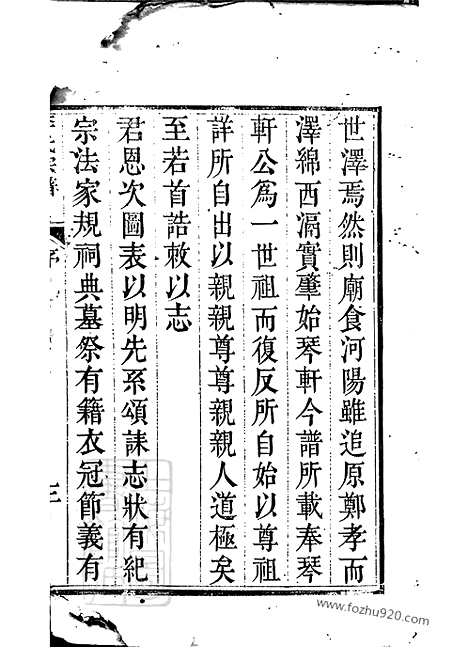 世澤焉然則廟食河陽雖追原鄭孝而
澤綿西滆實肇始琴軒今譜所載奉琴
軒公為一世祖而復反所自始以尊祖
詳所自出以親親尊尊親親人道極矣
至若首誥敕以志
君恩次圖表以明先系頌誄志狀有紀
宗法家規祠典墓祭有籍衣冠節義有
宗譜
序
三
www.fozhu920.com